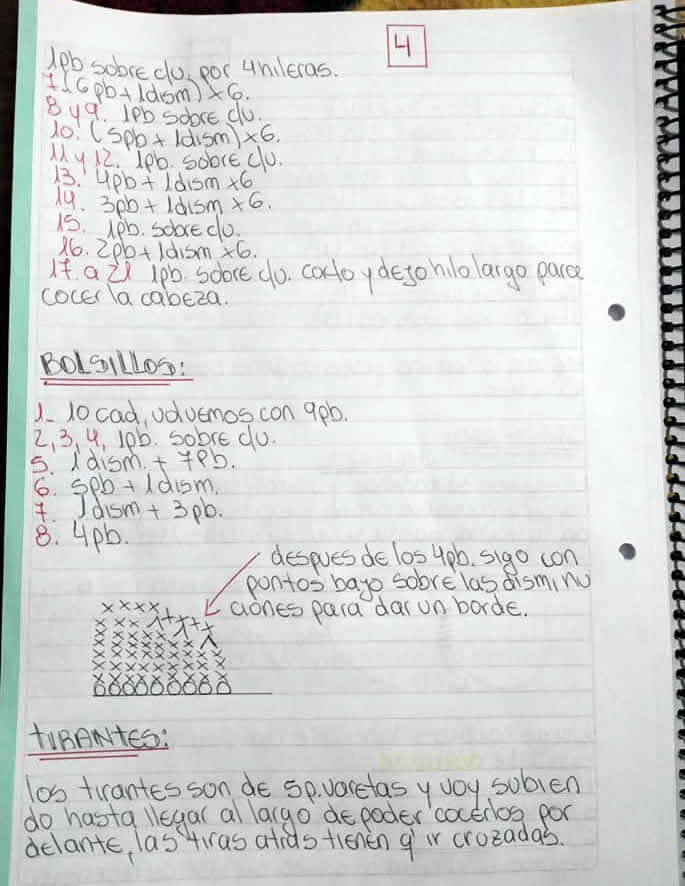 4
1pb sobre c/u, por 4 hileras.
7 (6pb + 1dism) x 6.
8 y 9. 1pb sobre c/u.
10. (5pb + 1dism) x 6.
11 y 12. 1pb. sobre c/u.
13. 4pb + 1dism x 6
14. 3pb + 1dism x 6.
15. 1pb. sobre c/u.
16. 2pb + 1dism x 6.
17. a 21 1pb. sobre c/u. corto y dejo hilo largo para
cocer la cabeza.
BOLSILLOS:
1- 10 cad, volvemos con 9pb.
2, 3, 4, 1pb. sobre c/u.
5. 1dism. + 7pb.
6. 5pb + 1dism.
7. 1dism + 3pb.
8. 4pb.
despues de los 4pb. sigo con
puntos bajo sobre las disminu
ciones para dar un borde.
tIRANtES:
los tirantes son de 5p. varetas y voy subien
do hasta llegar al largo de poder cocerlos por
delante, las tiras atras tienen q' ir cruzadas.